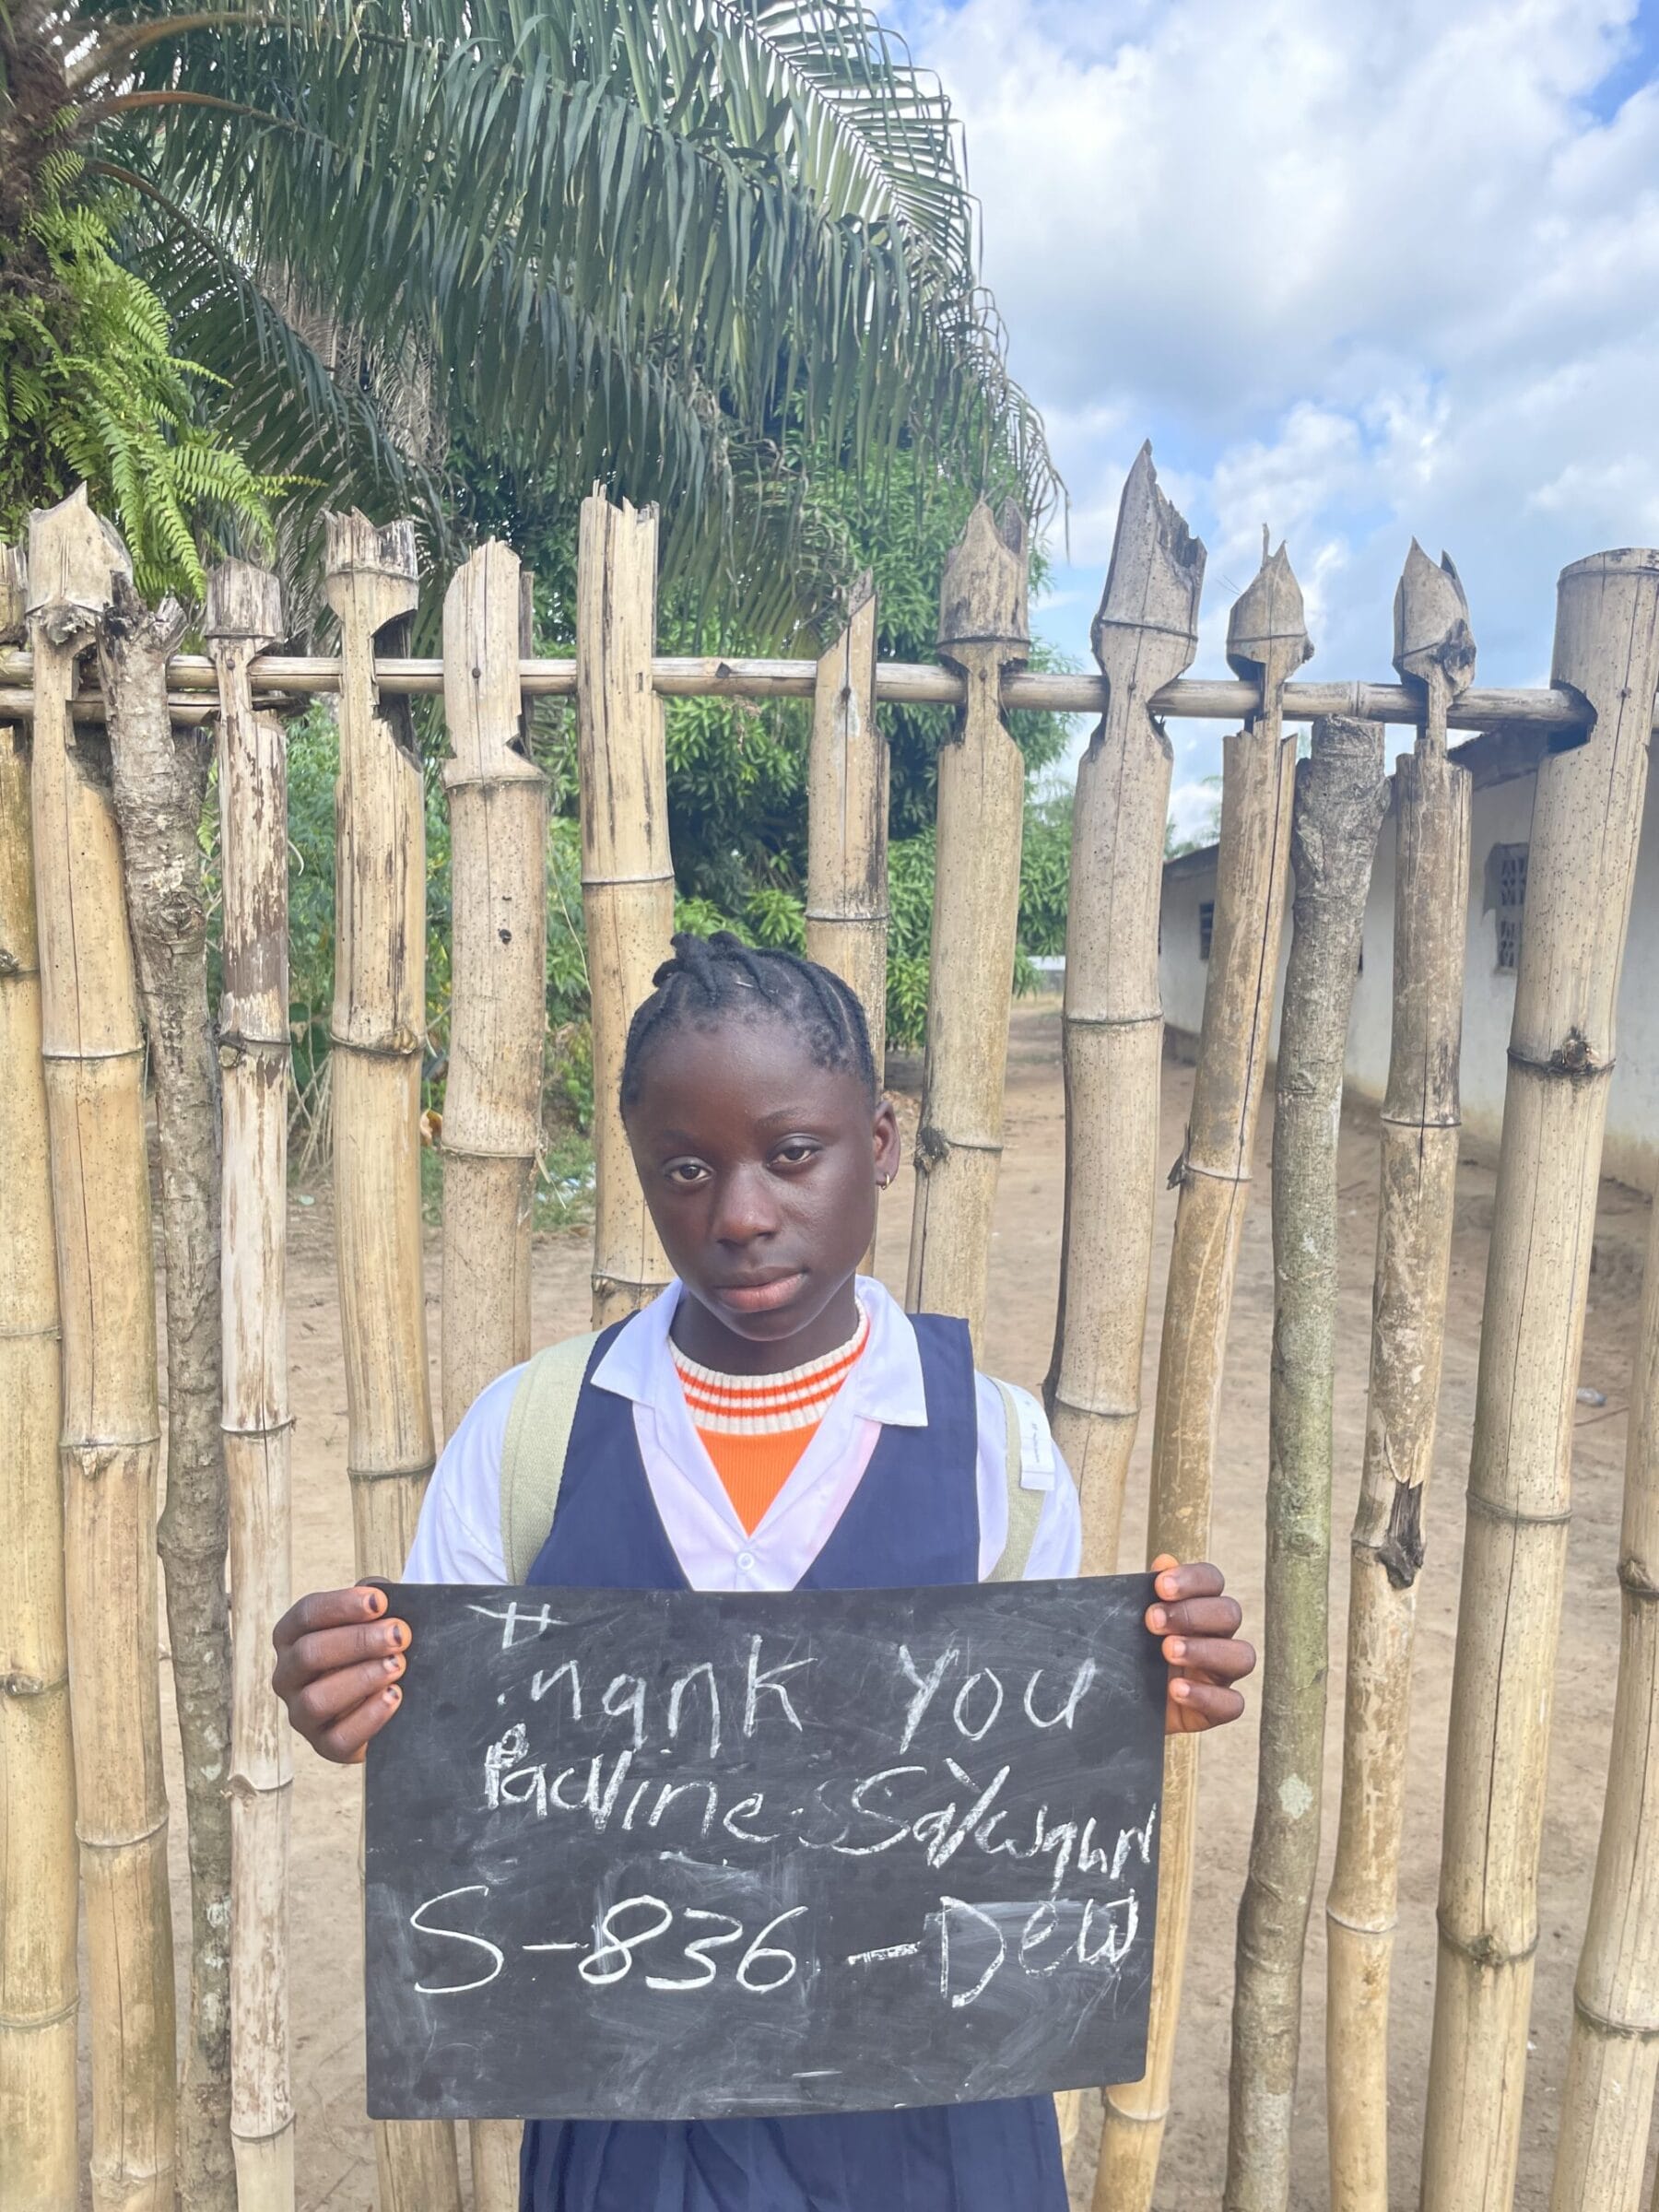 Thank You
Pauline Saywahn
S-836-Dew